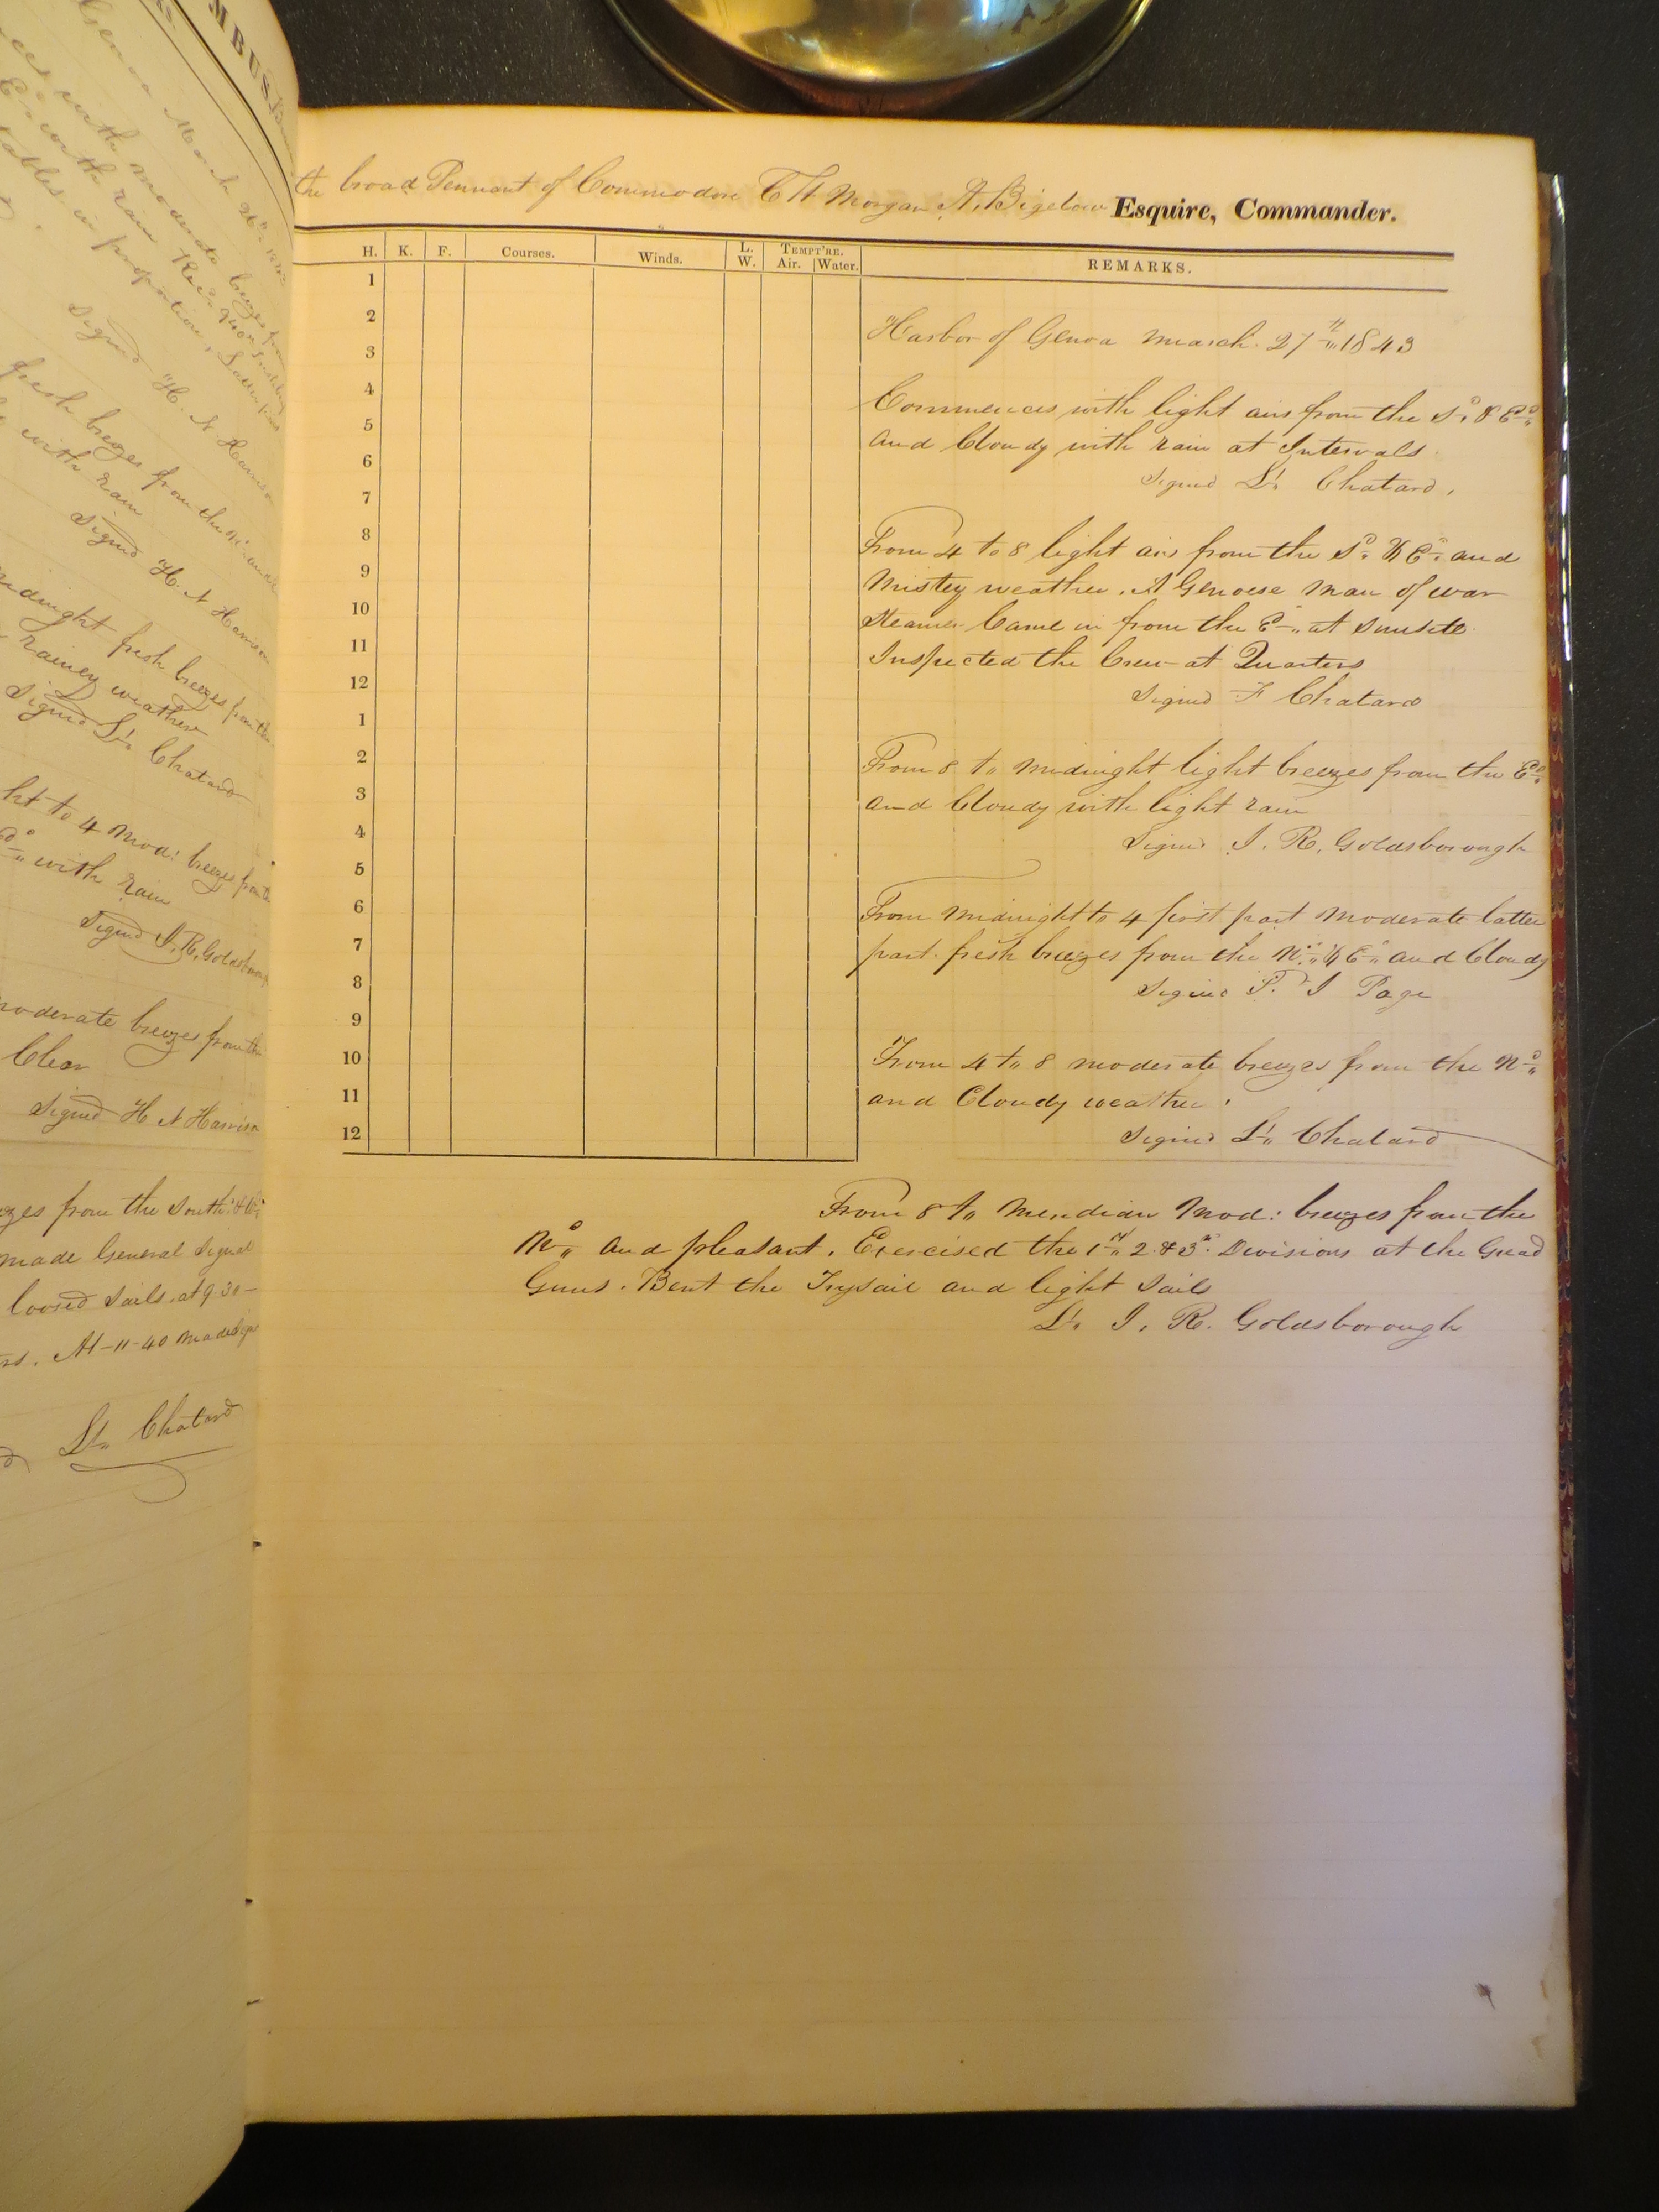 MBUS
Genoa March 26th 1843
with moderate breezes from
with rain
tables in proportion, Latter part
Signed H. N Harrison
fresh breezes from the Nd and
with rain
Signed H. N Harrison
midnight fresh breezes from the
rainey weather
Signed Lt. Chatard
ht to 4 Mod: breezes from the
with rain
Signed I. R. Goldsborough
moderate breezes from the
Clear
Signed H N Harrison
zes from the South. & Ed
made General Signal
loosed Sails. at 9.30
At 11-40 made Sign
Lt. Chatard
the broad Pennant of Commodore C W Morgan A. Bigelow Esquire, Commander.
H. K. F. Courses. Winds. L. W. Tempt're. Air. Water. REMARKS.
1
2
3
4
5
6
7
8
9
10
11
12
1
2
3
4
5
6
7
8
9
10
11
12
Harbor of Genoa March 27th 1843
Commences with light airs from the Sd. & Ed
and Cloudy with rain at Intervals.
Signed Lt. Chatard.
From 4 to 8 light airs from the Sd. & Ed. and
Mistey weather. A Genoese Man of war
Steamer Came in from the Ed at Sunsete
Inspected the Crew at Quarters
Signed F Chatard
From 8 to Midnight light breezes from the Ed
and Cloudy with light rain
Signed I. R. Goldsborough
From Midnight to 4 first part Moderate latter
part fresh breezes from the Nd & Ed and Cloudy
Signed P. I Page
From 4 to 8 moderate breezes from the Nd
and Cloudy weather.
Signed Lt. Chatard
From 8 to Meridian Mod: breezes from the
Nd and pleasant. Exercised the 1st 2 & 3d. Divisions at the Great
Guns. Bent the Trysail and light Sails
Lt. I. R. Goldsborough